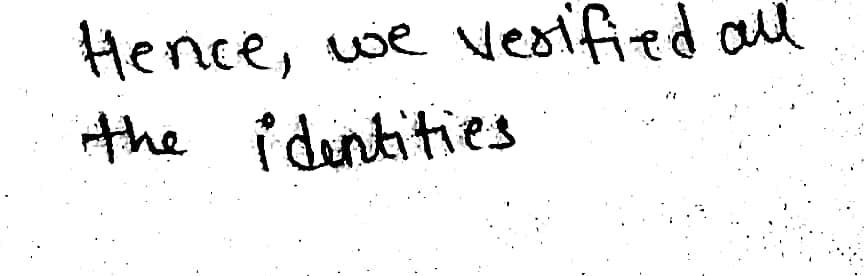 Hence, we verified all
the identities